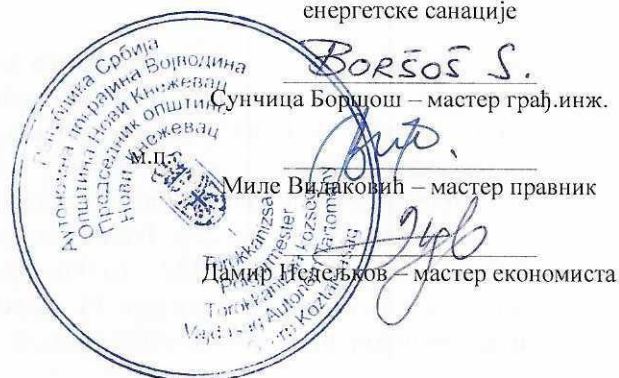 енергетске санације
BORŠOŠ S.
Сунчица Борщош – мастер грађ.инж.
м.п.
Миле Видаковић – мастер правник
Дамир Недељков – мастер економиста
Република Србија
Аутономна покрајина Војводина
Општина Нови Кнежевац
Председник општине
Нови Кнежевац
Törökkanizsa
Polgármester
Törökkanizsa Község
Vajdaság Autonóm Tartomány